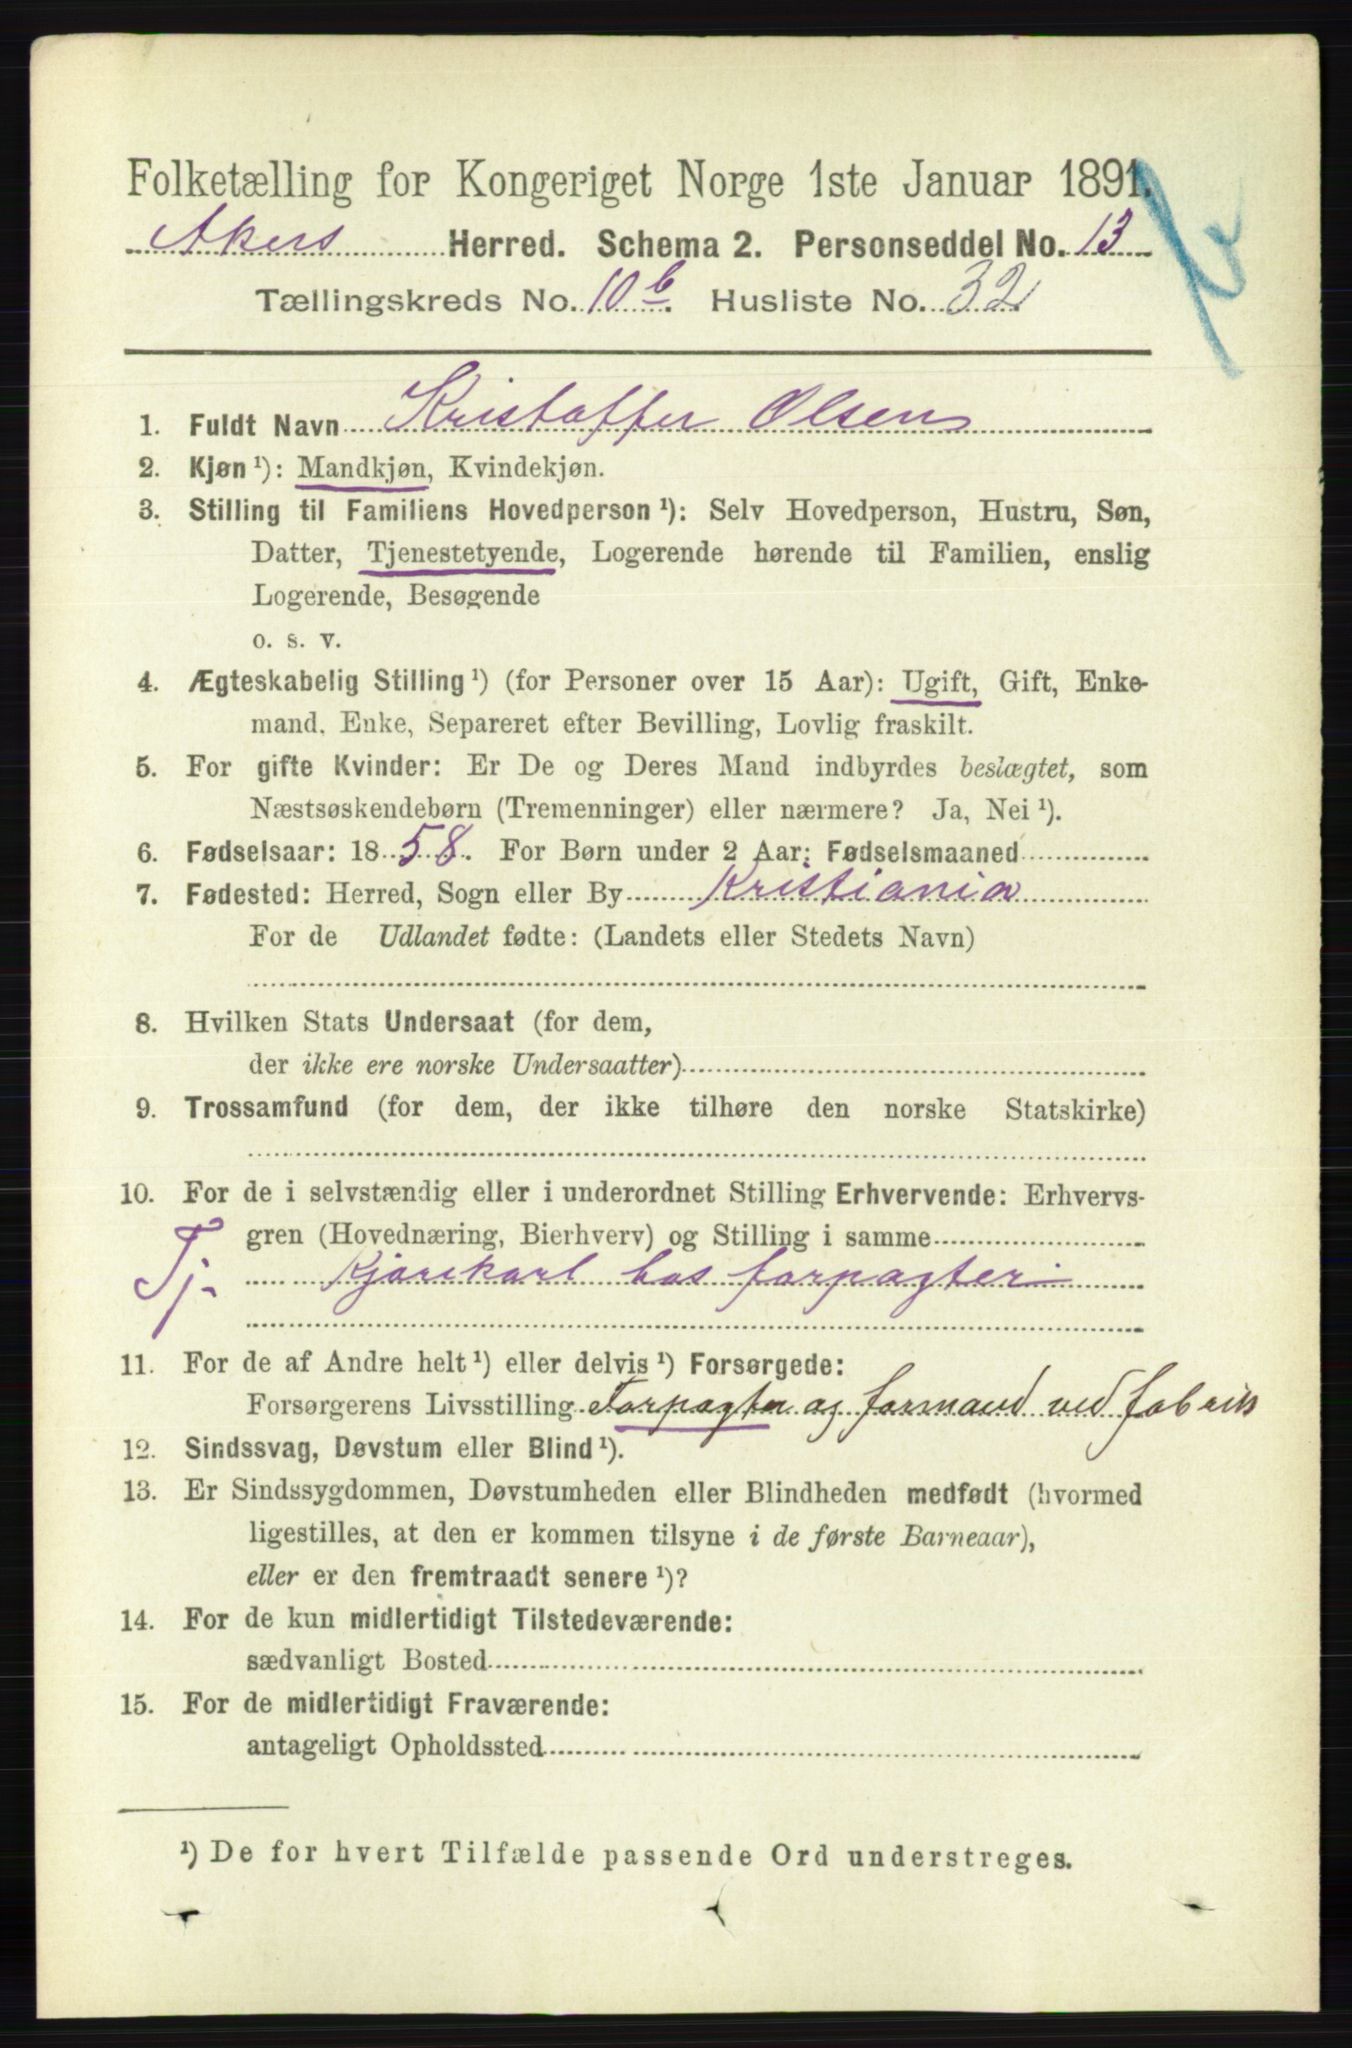 Folketælling for Kongeriget Norge 1ste Januar 1891.
Akers Herred. Schema 2. Personseddel No. 13
Tællingskreds No. 10 b. Husliste No. 32
1. Fuldt Navn Kristoffer Olsen
2. Kjøn ¹): Mandkjøn, Kvindekjøn.
3. Stilling til Familiens Hovedperson ¹): Selv Hovedperson, Hustru, Søn,
Datter, Tjenestetyende, Logerende hørende til Familien, enslig
Logerende, Besøgende
o. s. v.
4. Ægteskabelig Stilling ¹) (for Personer over 15 Aar): Ugift, Gift, Enke-
mand, Enke, Separeret efter Bevilling, Lovlig fraskilt.
5. For gifte Kvinder: Er De og Deres Mand indbyrdes beslægtet, som
Næstsøskendebørn (Tremenninger) eller nærmere? Ja, Nei ¹).
6. Fødselsaar: 1858. For Børn under 2 Aar: Fødselsmaaned
7. Fødested: Herred, Sogn eller By Kristiania
For de Udlandet fødte: (Landets eller Stedets Navn)
8. Hvilken Stats Undersaat (for dem,
der ikke ere norske Undersaatter)
9. Trossamfund (for dem, der ikke tilhøre den norske Statskirke)
10. For de i selvstændig eller i underordnet Stilling Erhvervende: Erhvervs-
gren (Hovednæring, Bierhverv) og Stilling i samme
Tj. Kjørekarl hos forpagter
11. For de af Andre helt ¹) eller delvis ¹) Forsørgede:
Forsørgerens Livsstilling Forpagter og formand ved fabrik
12. Sindssvag, Døvstum eller Blind ¹).
13. Er Sindssygdommen, Døvstumheden eller Blindheden medfødt (hvormed
ligestilles, at den er kommen tilsyne i de første Barneaar),
eller er den fremtraadt senere ¹)?
14. For de kun midlertidigt Tilstedeværende:
sædvanligt Bosted
15. For de midlertidigt Fraværende:
antageligt Opholdssted
¹) De for hvert Tilfælde passende Ord understreges.